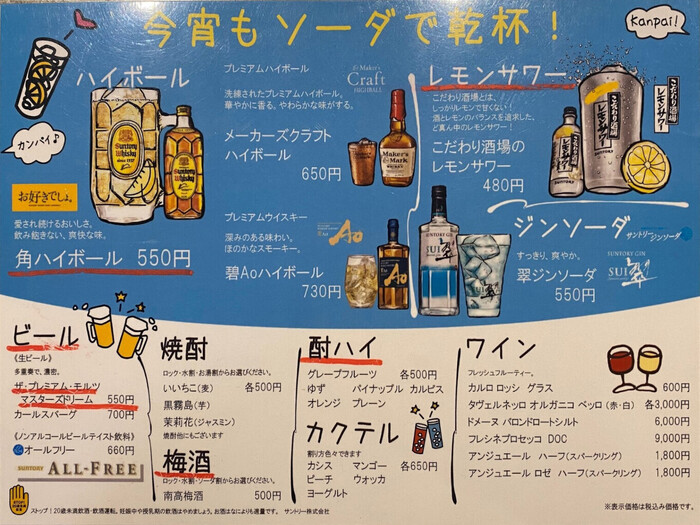 今宵もソーダで乾杯！
Kanpai!
カンパイ♪
ハイボール
SUNTORY
Whisky
お好きでしょ。
愛され続けるおいしさ。
飲み飽きない、爽快な味。
角ハイボール 550円
プレミアムハイボール
洗練されたプレミアムハイボール。
華やかに香る。やわらかな味がする。
Maker's
Craft
HIGHBALL
メーカーズクラフト
ハイボール
650円
Maker's
Mark
プレミアムウイスキー
深みのある味わい。
ほのかなスモーキー。
Ao
碧Aoハイボール
730円
レモンサワー
こだわり酒場とは、
しっかりレモンで甘くない！
酒とレモンのバランスを追求した、
ど真ん中のレモンサワー！
こだわり酒場の
レモンサワー
480円
こだわり酒場
レモンサワー
SUNTORY
ジンソーダ
サントリージンソーダ
すっきり、爽やか。
SUNTORY GIN
SUI 翠
翠ジンソーダ
550円
ビール
《生ビール》
多重奏で、濃密。
ザ・プレミアム・モルツ
マスターズドリーム 550円
カールスバーグ 700円
《ノンアルコールビールテイスト飲料》
オールフリー 660円
SUNTORY ALL-FREE
焼酎
ロック・水割・お湯割からお選びください。
いいちこ(麦) 各500円
黒霧島(芋)
茉莉花(ジャスミン)
焼酎他にもございます
梅酒
ロック・水割・ソーダ割からお選びください。
南高梅酒 500円
酎ハイ
グレープフルーツ 各500円
ゆず パイナップル カルピス
オレンジ プレーン
カクテル
割り方色々できます
カシス マンゴー 各650円
ピーチ ウォッカ
ヨーグルト
ワイン
フレッシュフルーティー。
カルロ ロッシ グラス 600円
タヴェルネッロ オルガニコ ペッロ (赤・白) 各3,000円
ドメーヌ バロンドロートシルト 6,000円
フレシネプロセッコ DOC 9,000円
アンジュエール ハーフ(スパークリング) 1,800円
アンジュエール ロゼ ハーフ(スパークリング) 1,800円
ストップ！20歳未満飲酒・飲酒運転。妊娠中や授乳期の飲酒はやめましょう。お酒はなによりも適量です。 サントリー株式会社
※表示価格は税込み価格です。